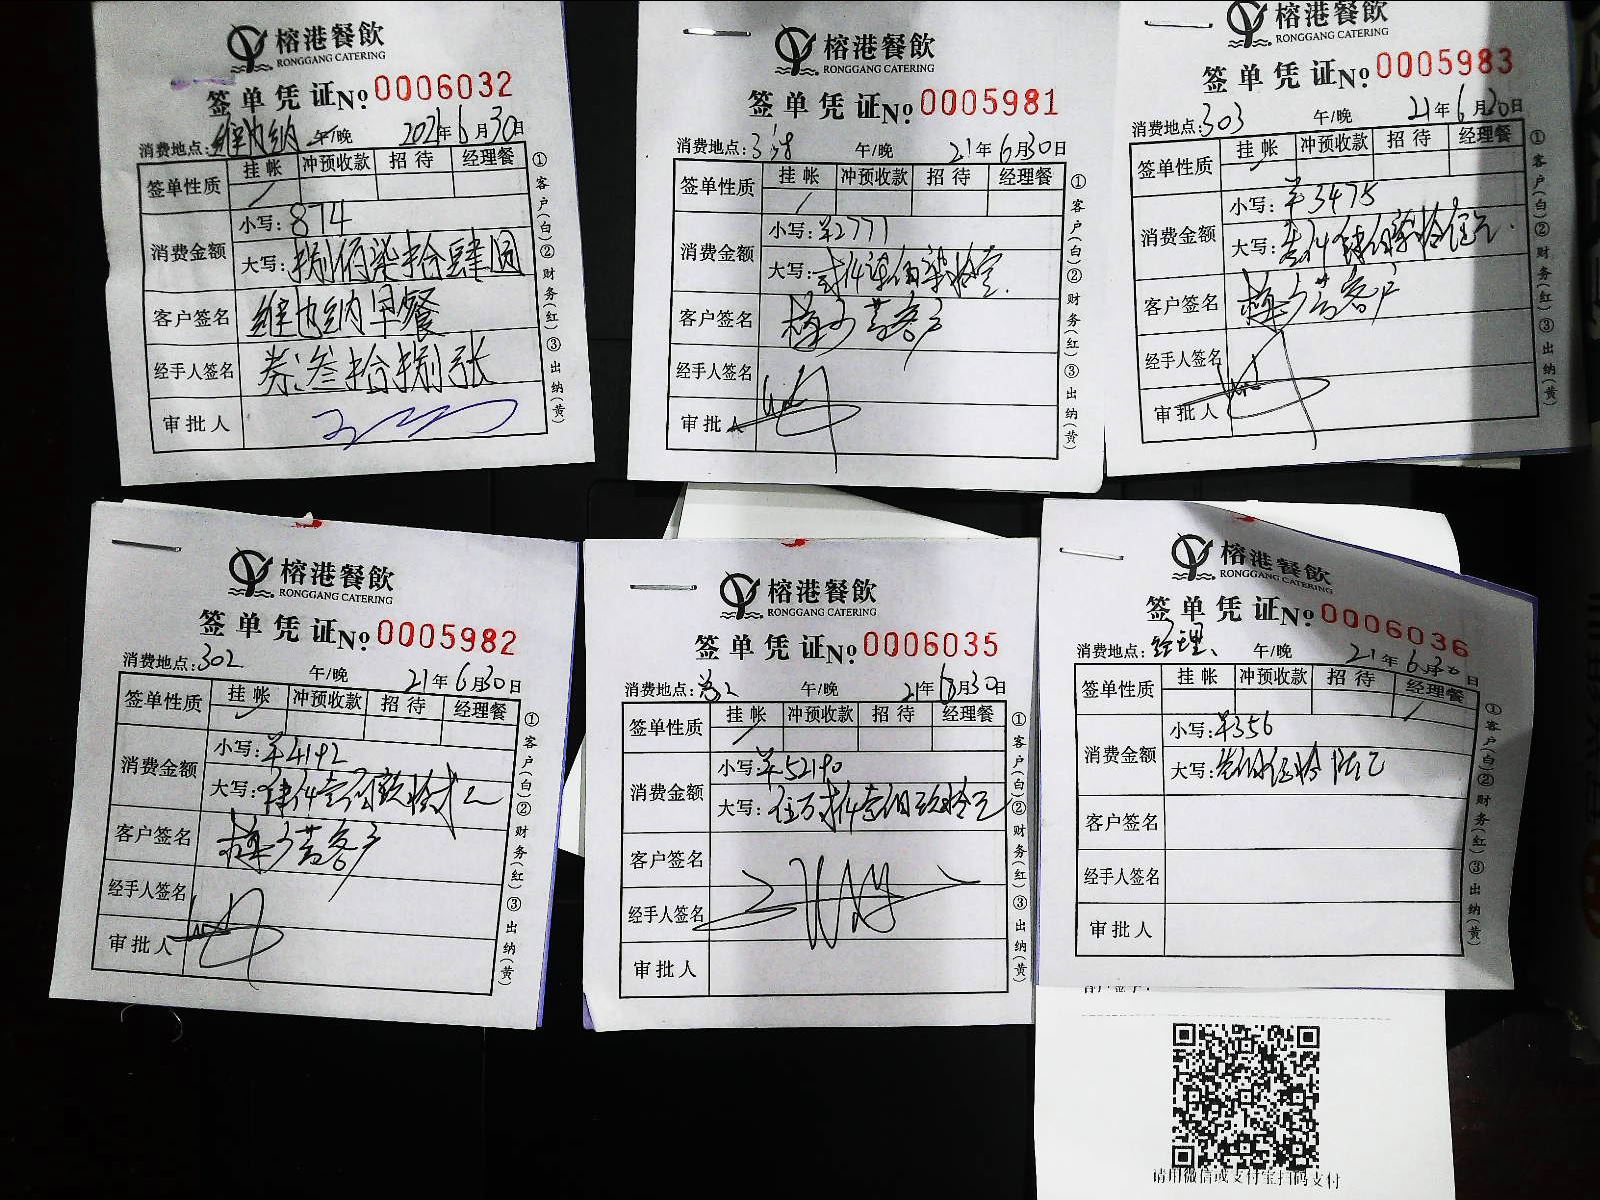 榕港餐飲
RONGGANG CATERING
签单凭证 No 0006032
消费地点:维也纳 午/晚 2021年6月30日
签单性质 挂帐 冲预收款 招待 经理餐
消费金额 小写:874
大写:捌佰柒拾肆圆
客户签名 维也纳早餐
经手人签名 券:叁拾捌张
审批人
①客户(白)②财务(红)③出纳(黄)
榕港餐飲
RONGGANG CATERING
签单凭证 No 0005981
消费地点: 午/晚 21年6月30日
签单性质 挂帐 冲预收款 招待 经理餐
消费金额 小写:¥2771
大写:
客户签名 客户
经手人签名
审批人
①客户(白)②财务(红)③出纳(黄)
榕港餐飲
RONGGANG CATERING
签单凭证 No 0005983
消费地点:303 午/晚 21年6月30日
签单性质 挂帐 冲预收款 招待 经理餐
消费金额 小写:¥3475
大写:叁仟肆佰柒拾伍元
客户签名 客户
经手人签名
审批人
①客户(白)②财务(红)③出纳(黄)
榕港餐飲
RONGGANG CATERING
签单凭证 No 0005982
消费地点:302 午/晚 21年6月30日
签单性质 挂帐 冲预收款 招待 经理餐
消费金额 小写:¥4192
大写:肆仟壹佰玖拾贰元
客户签名 客户
经手人签名
审批人
①客户(白)②财务(红)③出纳(黄)
榕港餐飲
RONGGANG CATERING
签单凭证 No 0006035
消费地点: 午/晚 21年6月30日
签单性质 挂帐 冲预收款 招待 经理餐
消费金额 小写:¥52190
大写:伍万贰仟壹佰玖拾元
客户签名
经手人签名
审批人
①客户(白)②财务(红)③出纳(黄)
榕港餐飲
RONGGANG CATERING
签单凭证 No 0006036
消费地点:经理 午/晚 21年6月30日
签单性质 挂帐 冲预收款 招待 经理餐
消费金额 小写:¥356
大写:叁佰伍拾陆元
客户签名
经手人签名
审批人
①客户(白)②财务(红)③出纳(黄)
请用微信或支付宝扫码支付